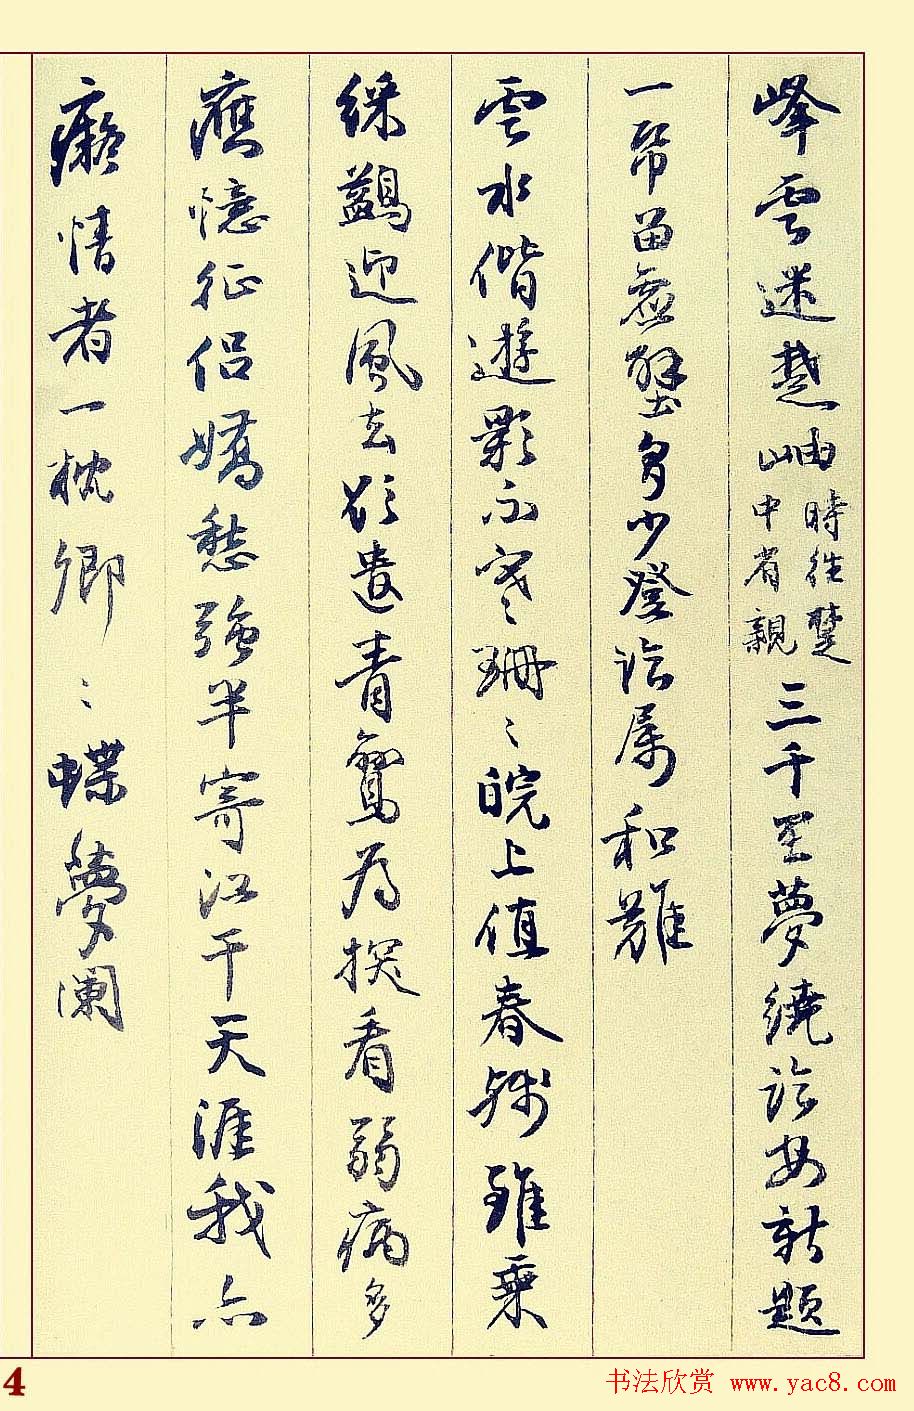 峰雲迷楚岫時往楚中省親三千里夢繞詒安新題
一帋留虛壁多少登詒屬和難
雲水偕遊影不寒珊〻皖上值春殘雖乘
綵鷁迎風去欲遣青鸞為探看弱病多
應憶征侣嬌愁強半寄江干天涯我亦
癡情者一枕鄉〻蝶夢闌
4
书法欣赏 www.yac8.com